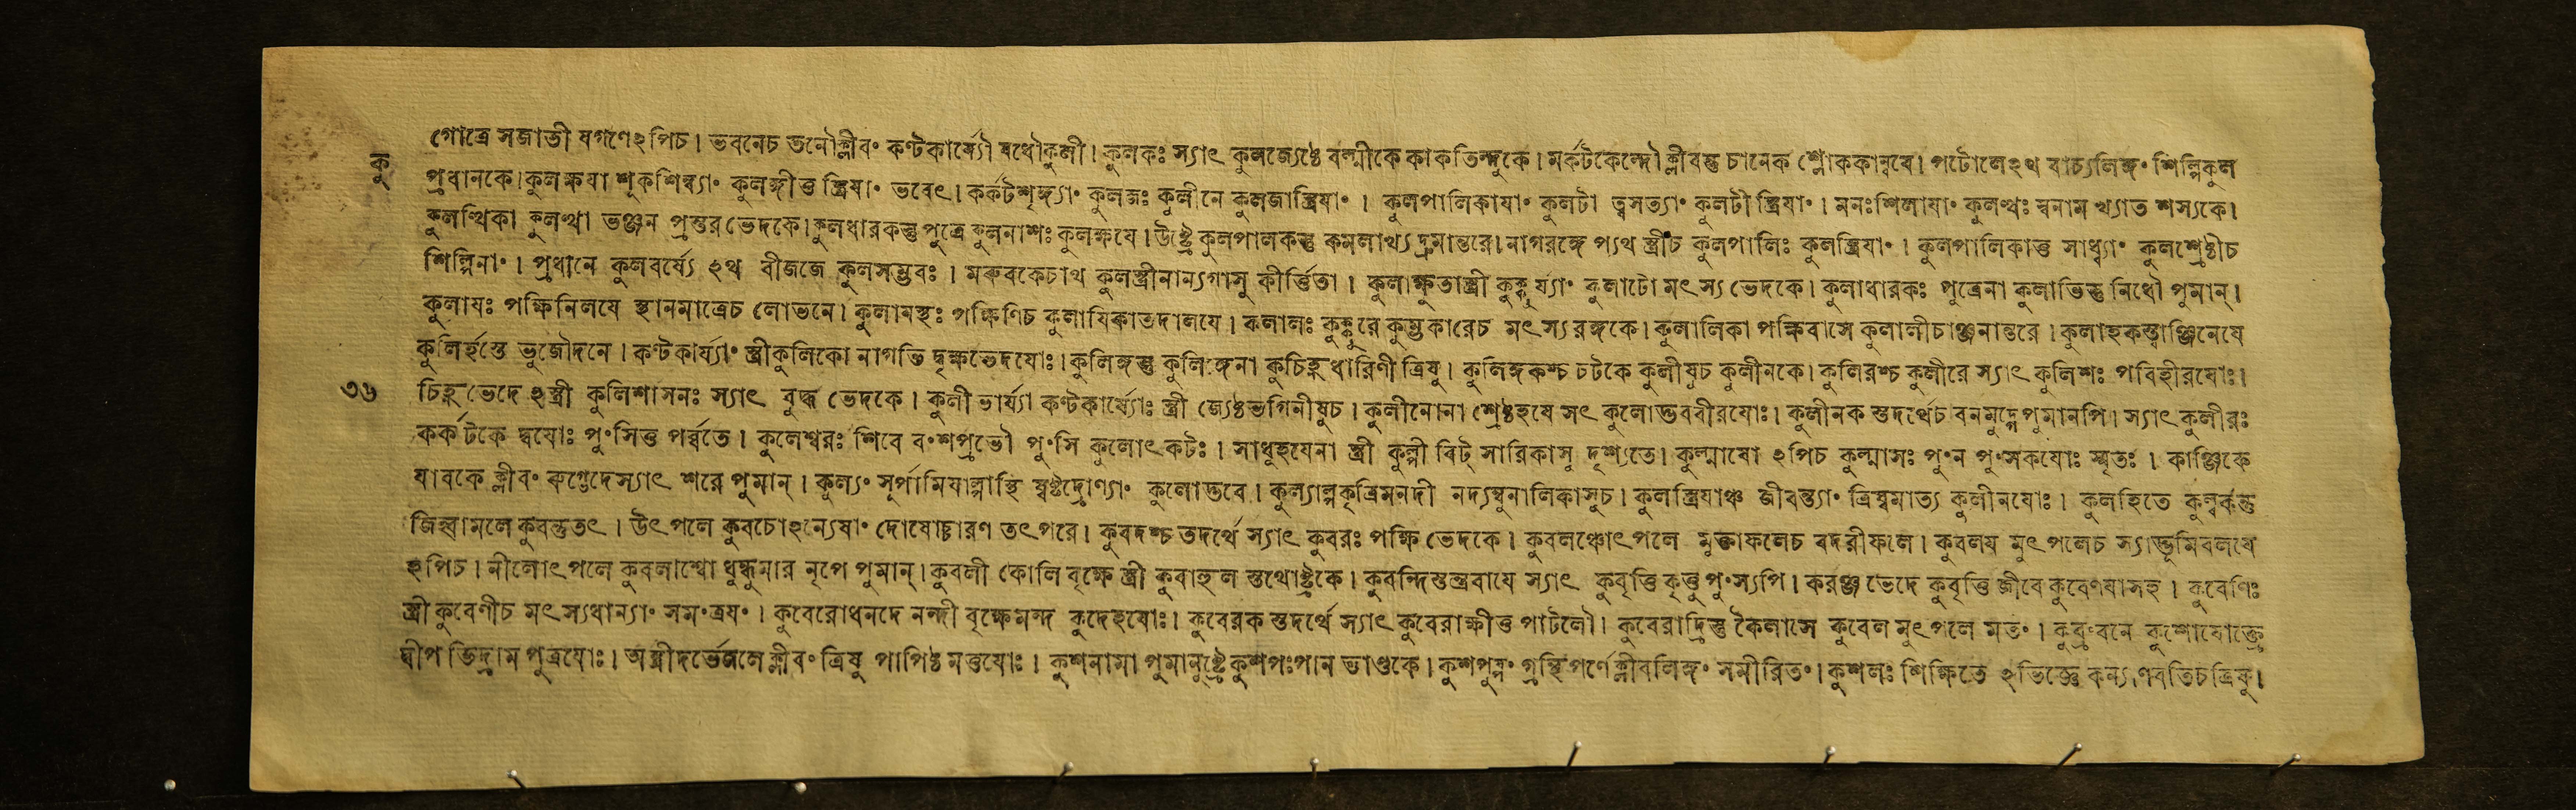 গোত্রে সজাতী যগণেঽপিচ। ভবনেচ তনৌক্লীবং কণ্টকার্য্যৌ ষধৌকুলী। কুলকঃ স্যাৎ কুলজ্যেষ্ঠে বল্মীকে কাকতিন্দুকে। মর্কটকেন্দৌ ক্লীবন্তু চানেক শ্লোককান্বযে। পটোলেঽথ বাচ্যলিঙ্গং শিল্পিকুল
কু প্রধানকে।কুলক্ষযা শূকশিম্ব্যাং কুলঙ্গীত্ত স্ত্রিযাং ভবেৎ। কর্কটশৃঙ্গ্যাং কুলজঃ কুলীনে কুলজাস্ত্রিযাং। কুলপালিকাযাং কুলটা ত্বসত্যাং কুলটী স্ত্রিযাং। মনঃশিলাযাং কুলত্থঃ স্বনাম খ্যাত শস্যকে।
কুলত্থিকা কুলত্থা ভঞ্জন প্রস্তরভেদকে।কুলধারকস্তু পুত্রে কুলনাশঃ কুলক্ষযে। উষ্ট্রে কুলপালকস্তু কমলাখ্য দ্রুমান্তরে। নাগরঙ্গে প্যথ স্ত্রীচ কুলপালিঃ কুলস্ত্রিযাং। কুলপালিকাত্ত সাধ্ব্যাং কুলশ্রেষ্ঠীচ
শিল্পিনাং। প্রধানে কুলবর্ষ্যে ঽথ বীজজে কুলসম্ভবঃ। মরুবকেচাথ কুলস্ত্রীনান্যগাসু কীর্ত্তিতা। কুলাক্ষুতাস্ত্রী কুক্কুর্য্যাং কুলাটো মৎস্য ভেদকে। কুলাধারকঃ পুত্রেনা কুলাভিস্তু নিধৌ পুমান্।
কুলাযঃ পক্ষিনিলযে স্থানমাত্রেচ লোভনে। কুলাযস্থঃ পক্ষিণিচ কুলাযিকাতদালযে। কলালঃ কুক্কুরে কুম্ভকারেচ মৎস্যরঙ্গকে। কুলালিকা পক্ষিবাসে কুলালীচাঞ্জনান্তরে। কুলাহকস্ত্বাঞ্জিনেযে
কুলির্হস্তে ভুজৌদনে। কণ্টকার্য্যাং স্ত্রীকুলিকো নাগভি দ্বৃক্ষভেদযোঃ। কুলিঙ্গস্তু কুলিঙ্গেনা কুচিহ্নধারিণী ত্রিষু। কুলিঙ্গকশ্চ চটকে কুলীষুচ কুলীনকে। কুলিরশ্চ কুলীরে স্যাৎ কুলিশঃ পবিহীরযোঃ।
৩৬ চিহ্নভেদে ঽস্ত্রী কুলিশাসনঃ স্যাৎ বুদ্ধ ভেদকে। কুলী ভার্য্যা কণ্টকার্য্যোঃ স্ত্রী জ্যেষ্ঠভগিনীষুচ। কুলীনোনা শ্রেষ্ঠহযে সৎ কুলোদ্ভববীরযোঃ। কুলীনক স্তদর্থেচ বনমুদ্গেপুমানপি। স্যাৎ কুলীরঃ
কর্কটকে দ্বযোঃ পুংসিত্ত পর্ব্বতে। কুলেশ্বরঃ শিবে বংশপ্রভৌ পুংসি কুলোৎকটঃ। সাধুহযেনা স্ত্রী কুল্পী বিট্ সারিকাসু দৃশ্যতে। কুল্মাষো ঽপিচ কুল্মাসঃ পুংন পুংসকযোঃ স্মৃতঃ। কাঞ্জিকে
যাবকে ক্লীবং রুগ্ভেদেস্যাৎ শরে পুমান্। কুল্যং সূর্পামিষাল্পাস্থি ষ্বষ্টদ্রোণ্যাং কুলোদ্ভবে। কুল্যাল্পকৃত্রিমনদী নদ্যম্বুনালিকাসুচ। কুলস্ত্রিযাঞ্চ জীবন্ত্যাং ত্রিষ্বমাত্য কুলীনযোঃ। কুলহিতে কুল্বকস্তু
জিহ্বামলে কুবন্তুতৎ। উৎপলে কুবচোঽন্যেষাং দোষোচ্চারণ তৎপরে। কুবদশ্চ তদর্থে স্যাৎ কুবরঃ পক্ষি ভেদকে। কুবলঞ্চোৎপলে মুক্তাফলেচ বদরীফলে। কুবলয মুৎপলেচ স্যাদ্ভূমিবলযে
ঽপিচ। নীলোৎপলে কুবলাশ্বো ধুন্ধুমার নৃপে পুমান্। কুবলী কোলি বৃক্ষে স্ত্রী কুবাহুল স্তথোষ্ট্রকে। কুবন্দিস্তন্ত্রবাযে স্যাৎ কুবৃত্তি কৃত্তু পুংস্যপি। করঞ্জভেদে কুবৃত্তি জীবে কুবেণযাসহ। কুবেণিঃ
স্ত্রী কুবেণীচ মৎস্যধান্যাং সমংত্রযং। কুবেরোধনদে নন্দী বৃক্ষেমন্দ কুদেহযোঃ। কুবেরক স্তদর্থে স্যাৎ কুবেরাক্ষীত্ত পাটলৌ। কুবেরাদ্রিস্তু কৈলাসে কুবেল মুৎপলে মতং। কুব্রংবনে কুশোযোক্ত্রে
দ্বীপ ভিদ্রাম পুত্রযোঃ। অস্ত্রীদর্ভেজলে ক্লীবং ত্রিষু পাপিষ্ঠ মত্তযোঃ। কুশনামা পুমানুষ্ট্রে কুশপঃপান ভাণ্ডকে। কুশপুষ্পং গ্রন্থিপর্ণে ক্লীবলিঙ্গং সমীরিতং। কুশলঃ শিক্ষিতে ঽভিজ্ঞে কল্যাণবতিচত্রিষু।